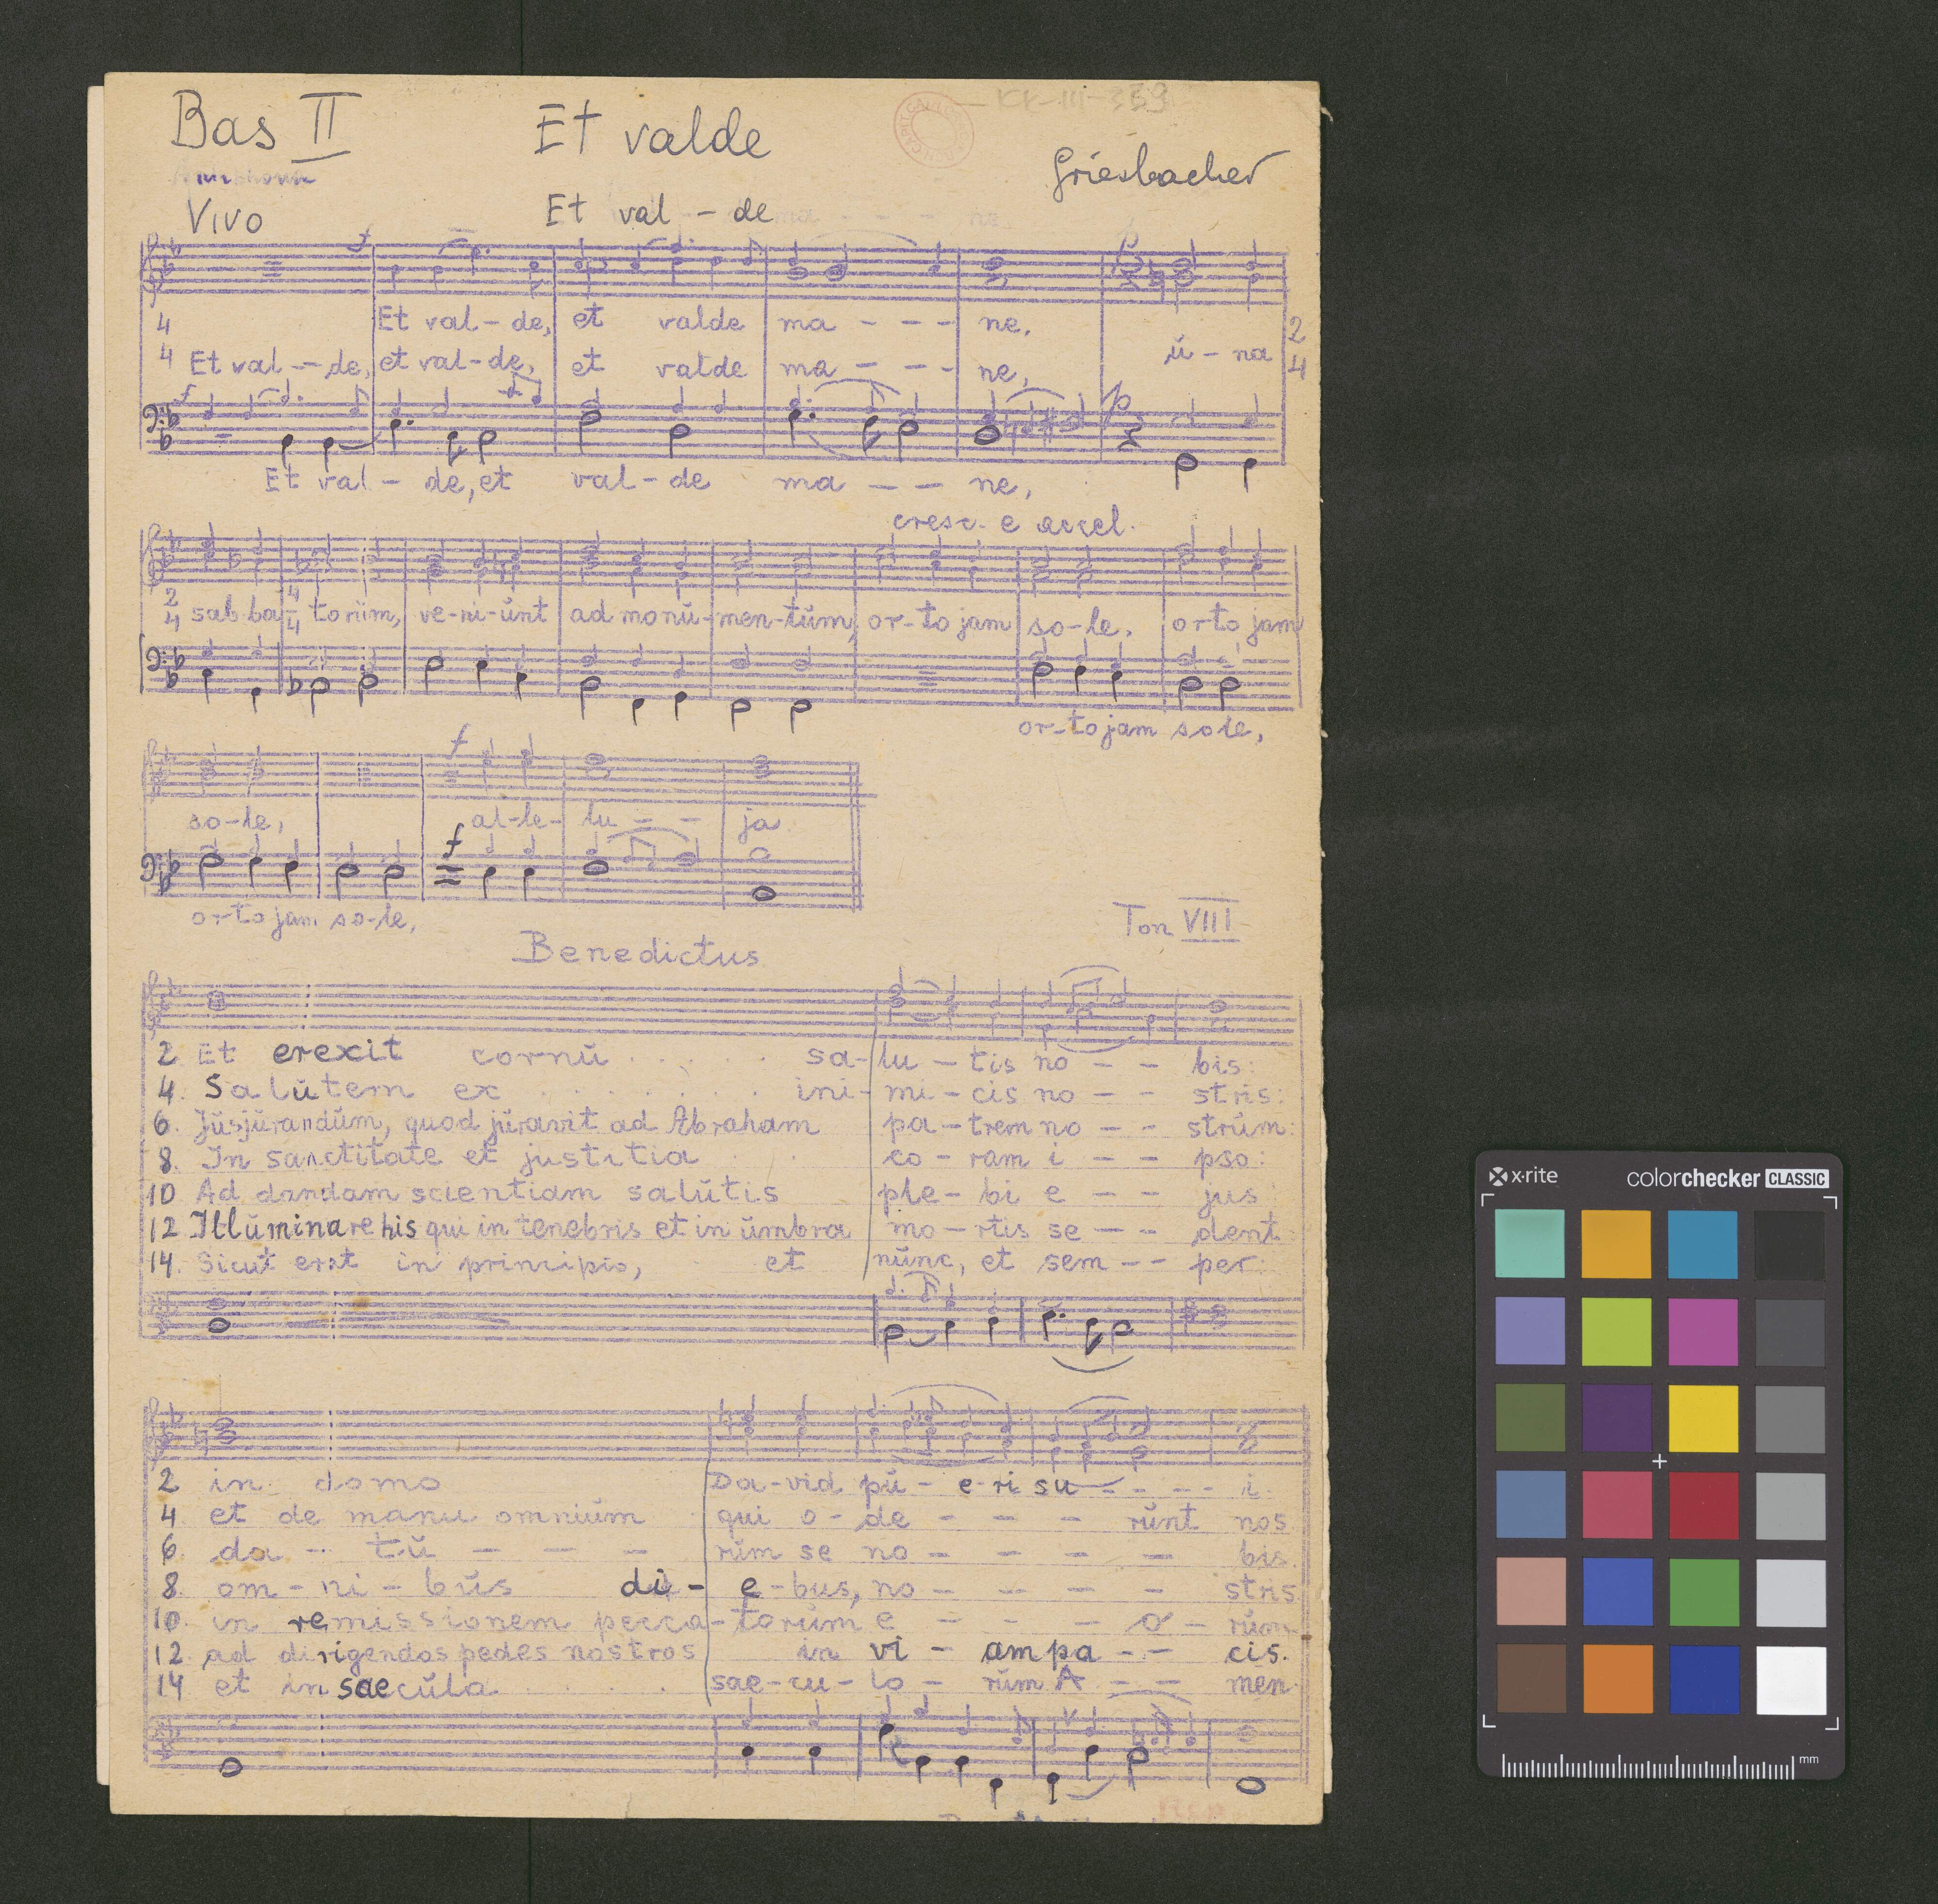 KK-III-339
Bas II Et valde
Griesbacher
Vivo Et val - de
Et val - de, et valde ma - - - ne.
4 2
4 Et val - - de, et val - de, et valde ma - - - ne, ŭ - na 4
Et val - de, et val - de ma - - ne,
cresc. e accel.
2 4
4 sab-ba 4 torŭm, ve-ni-ŭnt ad monŭ-men-tŭm, or-to jam so-le. orto jam
or-to jam sole,
so-le, al-le- lu - - ja
orto jam so-le,
Ton VIII
Benedictus
2 Et erexit cornŭ . . . . sa- lu - tis no - - bis:
4. Salŭtem ex . . . . . . . ini- mi - cis no - - stris:
6. Jŭsjŭrandŭm, quod jŭravit ad Abraham pa - trem no - - strŭm:
8. In sanctitate et justitia . . co - ram i - - pso:
10 Ad dandam scientiam salŭtis ple - bi e - - jus
12 Illŭminare his qui in tenebris et in ŭmbra mo - rtis se - - dent
14. Sicut erat in principio, et nŭnc, et sem - - per:
2 in domo Da-vid pŭ - e-ri su - - - - i.
4. et de manu omniŭm qui o - de - - - rŭnt nos
6. da - tŭ - - - rŭm se no - - - - bis.
8. om - ni - bŭs di - e - bus, no - - - - stris
10. in remissionem pecca-torŭm e - - - o - rŭm
12. ad dirigendos pedes nostros in vi - am pa - - cis.
14 et in saecŭla . . . . . sae-cu-lo - rŭm A - - men.
x·rite colorchecker CLASSIC
mm